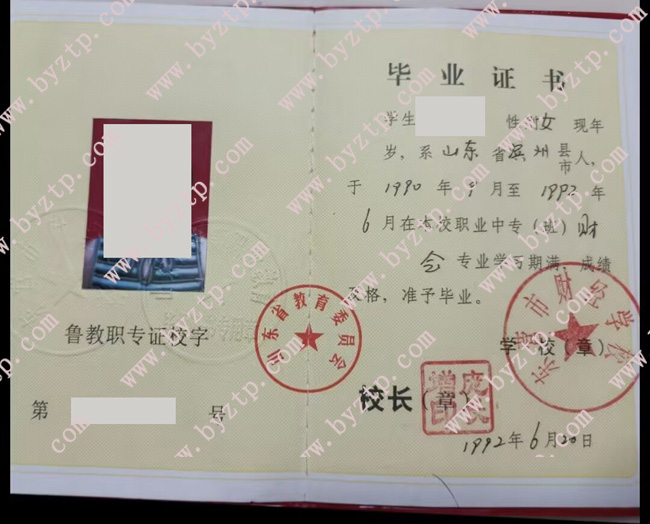 毕业证书
学生 性别女 现年
岁，系山东省滨州县市人，
于1990年9月至1992年
6月在本校职业中专（班）财
会专业学习期满，成绩
及格，准予毕业。
鲁教职专证校字
山东省教育委员会
学校（章）
校长（章）
第 号
1992年6月20日
www.byztp.com